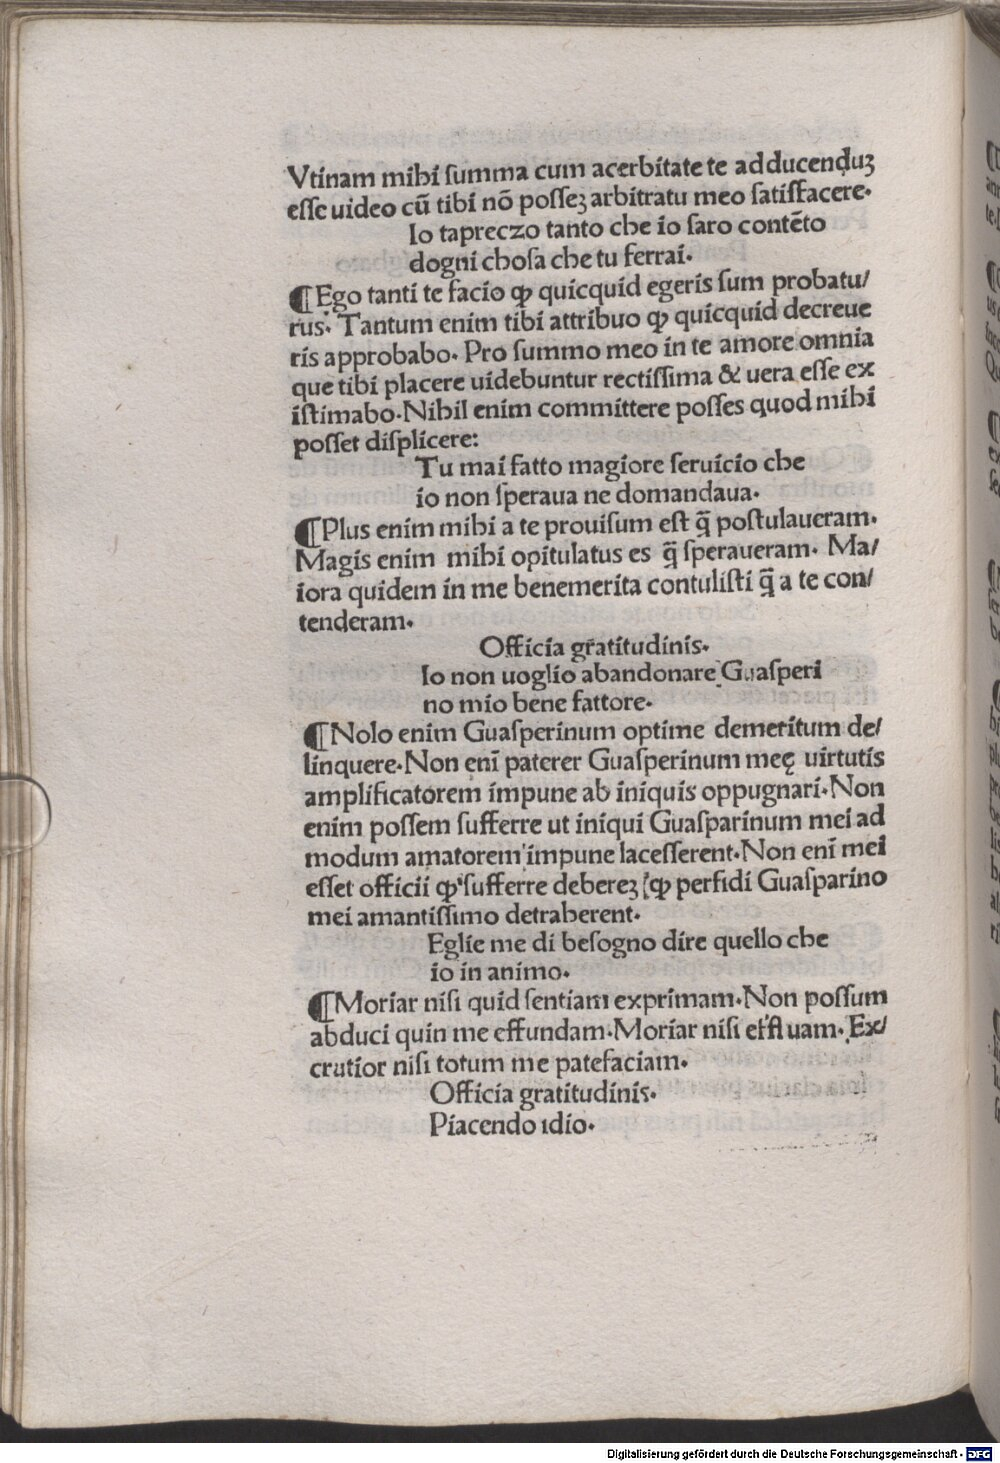 Vtinam mihi ſumma cum acerbitate te ad ducenduꝫ
eſſe uideo cū tibi nō poſſeꝫ arbitratu meo ſatiſfacere.
Io tapreczo tanto che io ſaro contēto
dogni choſa che tu ferrai.
¶Ego tanti te facio ꝙ quicquid egeris ſum probatu/
rus. Tantum enim tibi attribuo ꝙ quicquid decreue
ris approbabo. Pro ſummo meo in te amore omnia
que tibi placere uidebuntur rectiſſima & uera eſſe ex
iſtimabo. Nihil enim committere poſſes quod mihi
poſſet diſplicere:
Tu mai fatto magiore ſeruicio che
io non ſperaua ne domandaua.
¶Plus enim mihi a te prouiſum eſt q̄ poſtulaueram.
Magis enim mihi opitulatus es q̄ ſperaueram. Ma/
iora quidem in me benemerita contuliſti q̄ a te con/
tenderam.
Officia gratitudinis.
Io non uoglio abandonare Guaſperi
no mio bene fattore.
¶Nolo enim Guaſperinum optime demeritum de/
linquere. Non eni̅ paterer Guaſperinum meę uirtutis
amplificatorem impune ab iniquis oppugnari. Non
enim poſſem ſufferre ut iniqui Guaſparinum mei ad
modum amatorem impune laceſſerent. Non eni̅ mei
eſſet officii ꝙ ſufferre debereꝫ ꝙ perfidi Guaſparino
mei amantiſſimo detraherent.
Eglie me di beſogno dire quello che
io in animo.
¶Moriar niſi quid ſentiam exprimam. Non poſſum
abduci quin me effundam. Moriar niſi effluam. Ex/
crutior niſi totum me patefaciam.
Officia gratitudinis.
Piacendo idio.
Digitalisierung gefördert durch die Deutsche Forschungsgemeinschaft - DFG